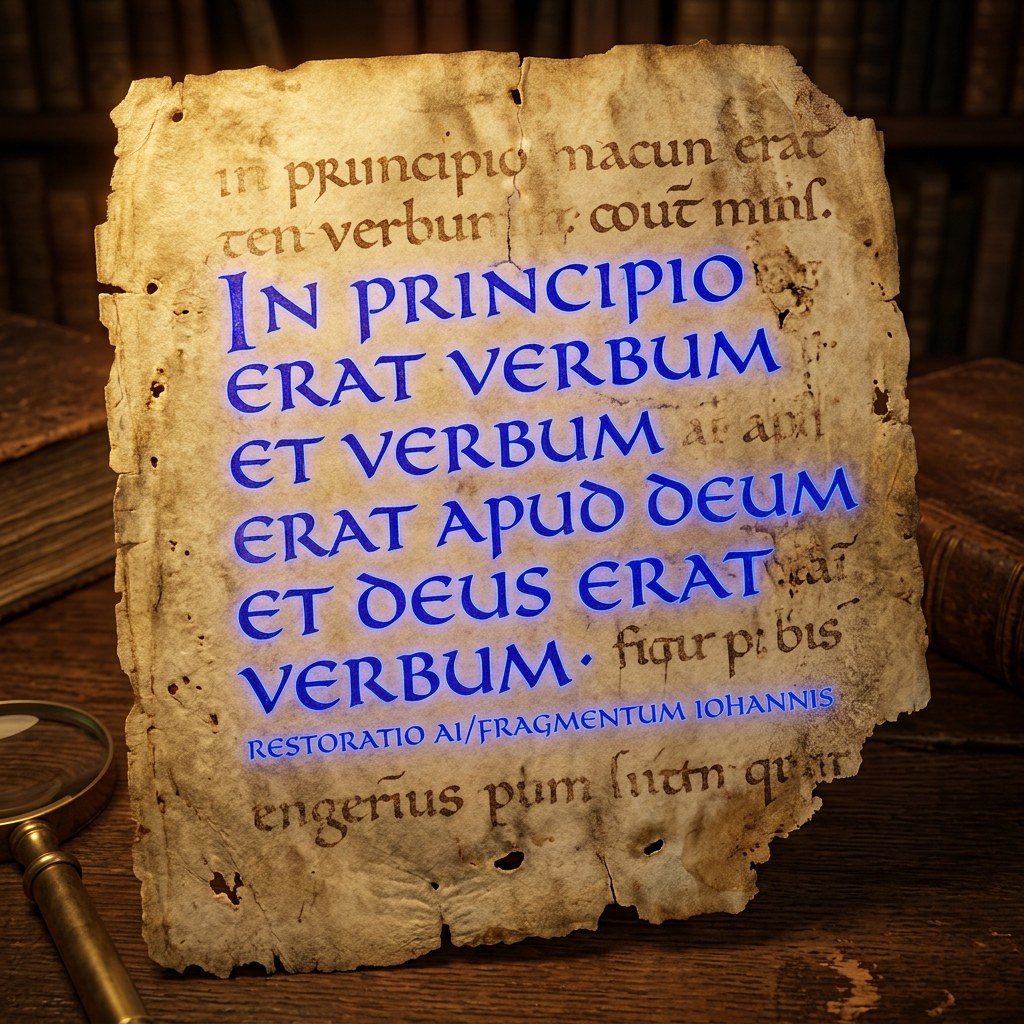 in priuncipio macun erat
ten-verbun cout̄ minſ.
IN PRINCIPIO
ERAT VERBUM
ET VERBUM
ERAT APUD DEUM
ET DEUS ERAT
VERBUM·
figur p: bis
RESTORATIO AI/FRAGMENTUM IOHANNIS
enger̄ius pum